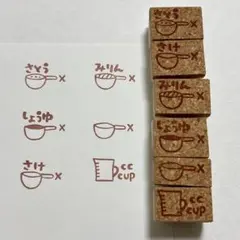 さとう
x
みりん
x
しょうゆ
x
x
さけ
x
cc
cup
さとう
x
さけ
x
みりん
x
しょうゆ
x
x
cc
cup